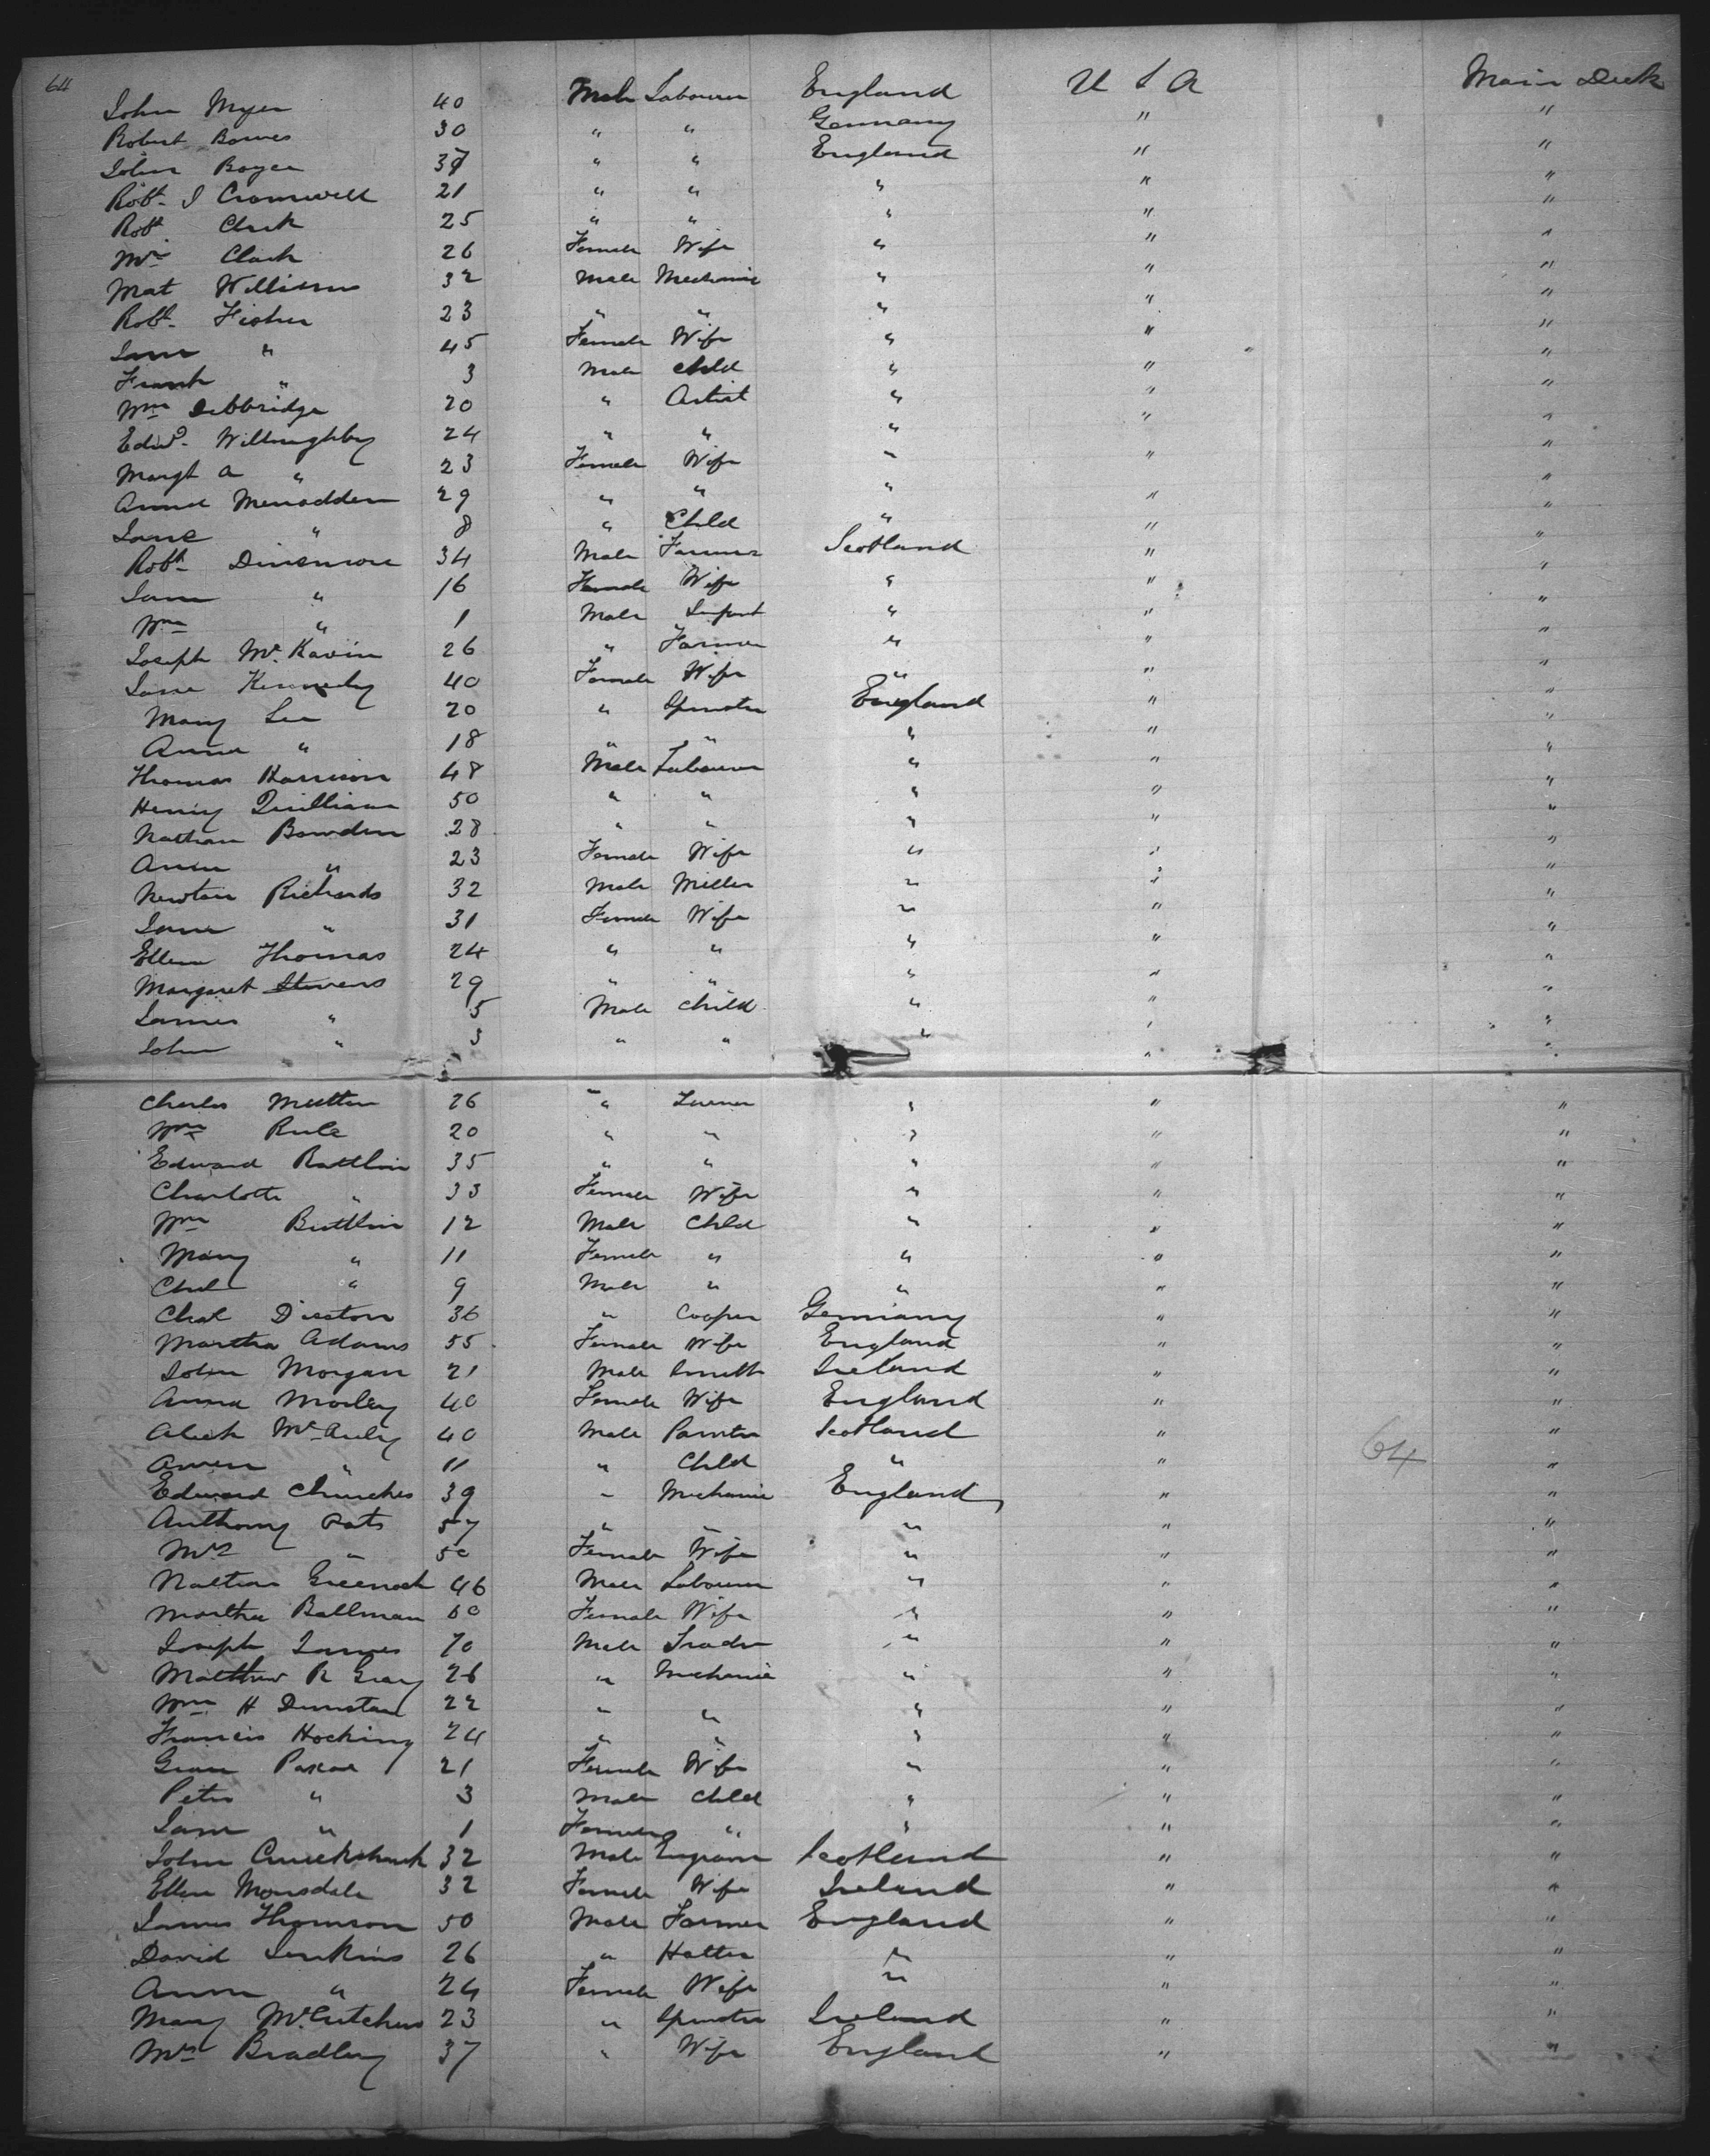 64
John Myer 40 Male Labourer England U S A Main Deck
Robert Bowes 30 " " Germany " "
John Boyer 37 " " England " "
Robt. J Cromwell 21 " " " " "
Robt Clark 25 " " " " "
Mrs Clark 26 Female Wife " " "
Mat Williams 32 Male Mechanic " " "
Robt. Fisher 23 " " " " "
Jane " 45 Female Wife " " "
Frank " 3 Male Child " " "
Wm 20 " Artist " " "
Edwd. Willoughby 24 " " " " "
Margt A " 23 Female Wife " " "
Anna 29 " " " " "
Jane " 8 " Child " " "
Robt Dinsmore 34 Male Farmer Scotland " "
Jane " 16 Female Wife " " "
Wm " 1 Male Infant " " "
Joseph 26 " Farmer " " "
Jane Kennedy 40 Female Wife " " "
Mary Lee 20 " Spinster England " "
Anna " 18 " " " " "
Thomas Harrison 48 Male Labourer " " "
Henry Quilliam 50 " " " " "
Nathan Bowden 28 " " " " "
Ann " 23 Female Wife " " "
Newton Richards 32 Male Miller " " "
Jane " 31 Female Wife " " "
Ellen Thomas 24 " " " " "
Margaret Stevens 29 " " " " "
James " 5 Male Child " " "
John " 3 " " " " "
Charles 26 " Farmer " " "
Wm Rule 20 " " " " "
Edward 35 " " " " "
Charlotte " 33 Female Wife " " "
Wm 12 Male Child " " "
Mary " 11 Female " " " "
Chas " 9 Male " " " "
Chas 36 " Cooper Germany " "
Martha Adams 55 Female Wife England " "
John Morgan 21 Male Smith Ireland " "
Anna Morley 40 Female Wife England " "
Aleck McAuley 40 Male Painter Scotland " "
" 11 " Child " " "
Edward Churches 39 " Mechanic England " "
Anthony Oats 57 " " " " "
Mrs " 50 Female Wife " " "
64
Nathan 46 Male Labourer " " "
Martha Ballman 60 Female Wife " " "
Joseph James 70 Male Trader " " "
Matthew R Gray 26 " Mechanic " " "
Wm H Dunstan 22 " " " " "
Francis Hocking 24 " " " " "
Pascoe 21 Female Wife " " "
Peter " 3 Male Child " " "
Jane " 1 Female " " " "
John Cruickshank 32 Male Engraver Scotland " "
Ellen 32 Female Wife Ireland " "
James Thomson 50 Male Farmer England " "
David Jenkins 26 " Hatter " " "
Ann " 24 Female Wife " " "
Mary McCutcheon 23 " Spinster Ireland " "
Mrs Bradley 37 " Wife England " "